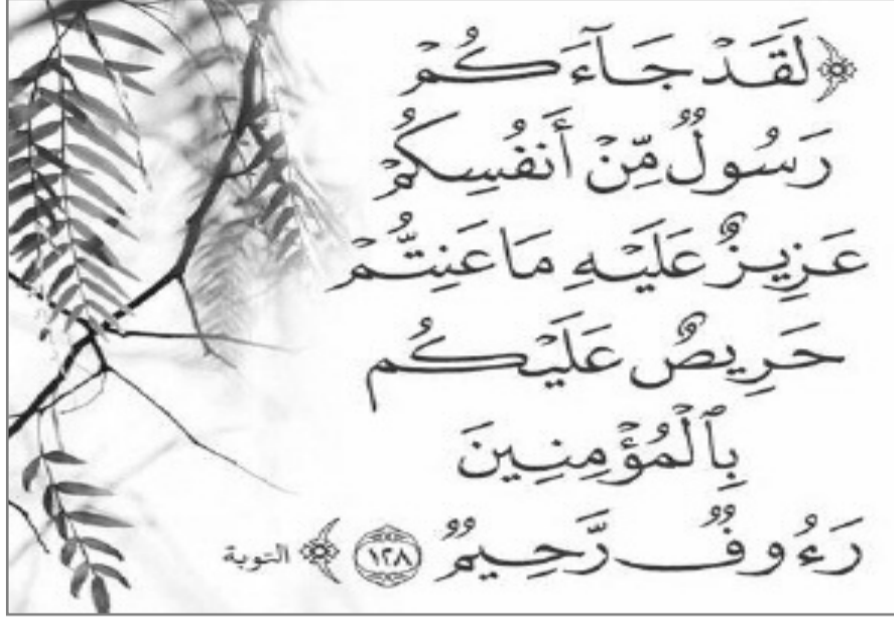 ﴿لَقَدۡ جَآءَكُمۡ
رَسُولٞ مِّنۡ أَنفُسِكُمۡ
عَزِيزٌ عَلَيۡهِ مَا عَنِتُّمۡ
حَرِيصٌ عَلَيۡكُم
بِٱلۡمُؤۡمِنِينَ
رَءُوفٞ رَّحِيمٞ ١٢٨﴾ التوبة